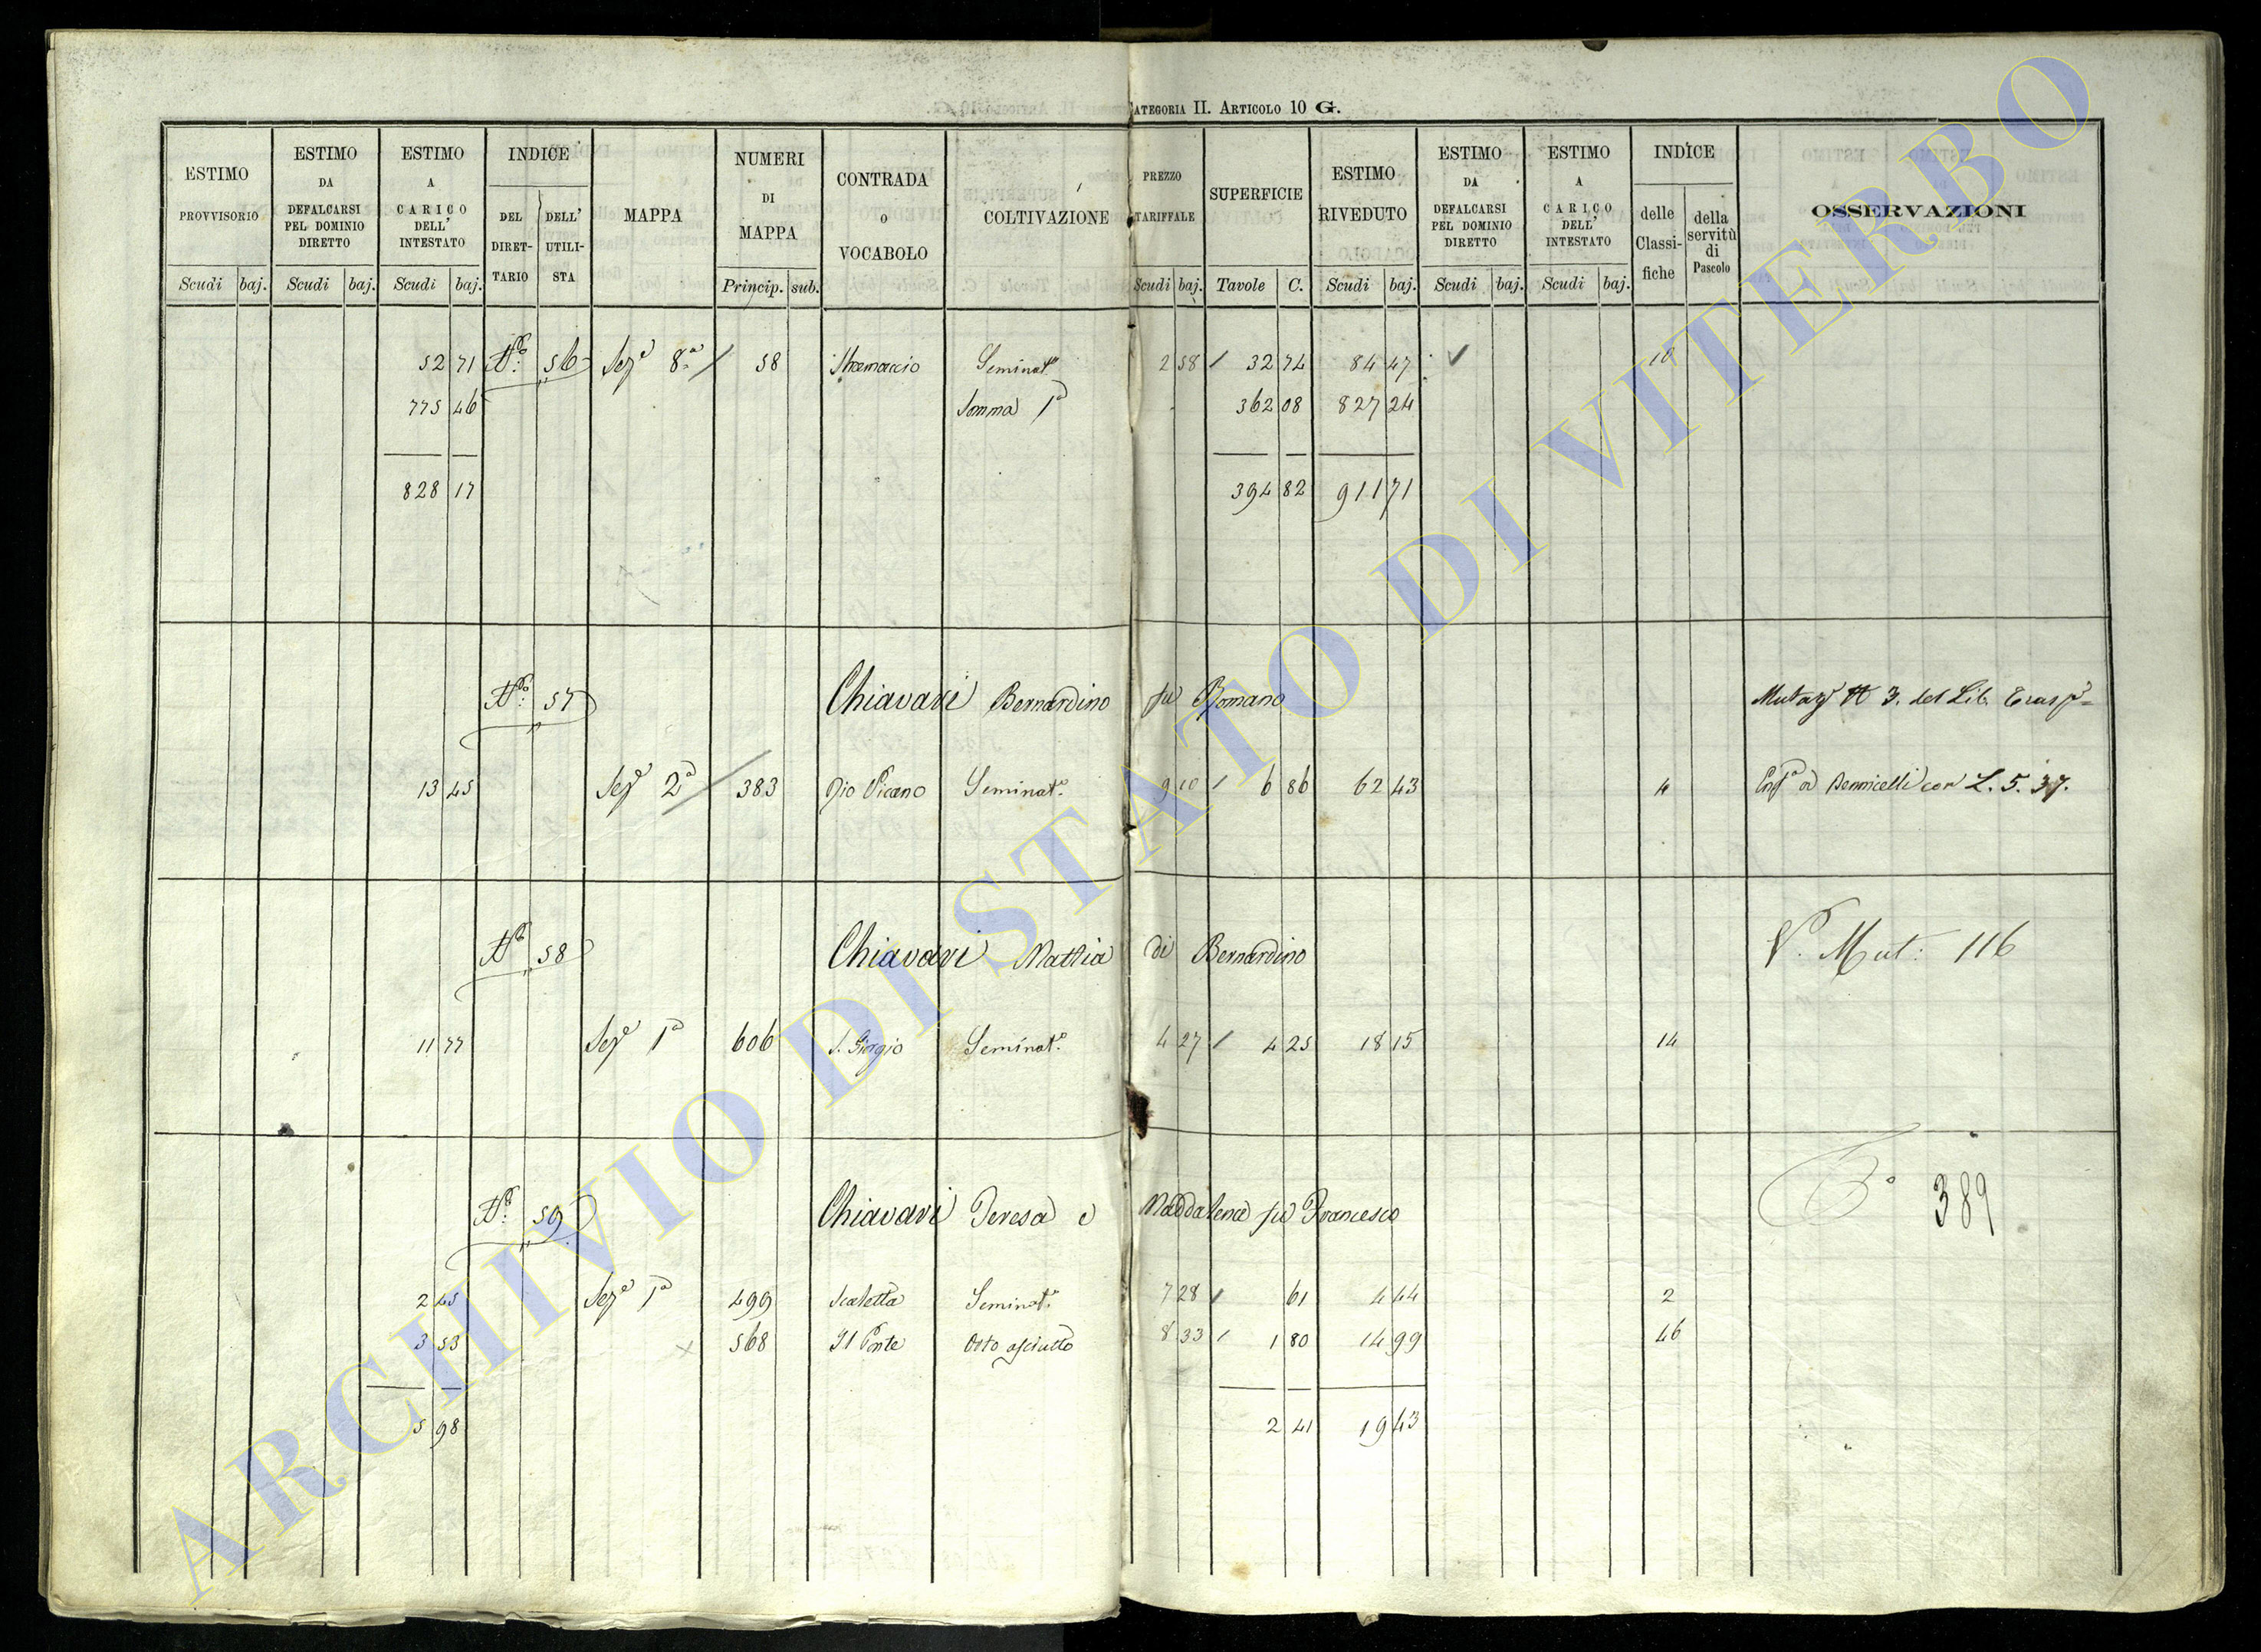 CATEGORIA II. ARTICOLO 10 G.
ESTIMO PROVVISORIO Scudi baj.
ESTIMO DA DEFALCARSI PEL DOMINIO DIRETTO Scudi baj.
ESTIMO A CARICO DELL' INTESTATO Scudi baj.
INDICE DEL DIRETTARIO DELL' UTILISTA
MAPPA
NUMERI DI MAPPA Princip. sub.
CONTRADA O VOCABOLO
COLTIVAZIONE
PREZZO TARIFFALE Scudi baj.
SUPERFICIE Tavole C.
ESTIMO RIVEDUTO Scudi baj.
ESTIMO DA DEFALCARSI PEL DOMINIO DIRETTO Scudi baj.
ESTIMO A CARICO DELL' INTESTATO Scudi baj.
INDICE delle Classifiche della servitù di Pascolo
OSSERVAZIONI
52 71 N° 56 Seze 8a 58 Seminat° 2 58 32 74 84 47 10
775 46 Somma 1a 362 08 827 24
828 17 394 82 911 71
N° 57 Chiavari Bernardino fu Romano
13 45 Seze 2a 383 Rio Vicano Seminat° 9 10 6 86 62 43 4 Bennicelli con L. 5. 37.
N° 58 Chiavari Mattia di Bernardino V. Mut: 116
11 77 Seze 1a 606 S. Giorgio Seminat° 4 27 4 25 18 15 14
N° 59 Chiavari Teresa e Maddalena fu Francesco 389
2 45 Seze 1a 499 Scaletta Seminat° 7 28 61 4 44 2
3 53 568 Il Ponte Orto asciutto 8 33 1 80 14 99 46
5 98 2 41 19 43
ARCHIVIO DI STATO DI VITERBO